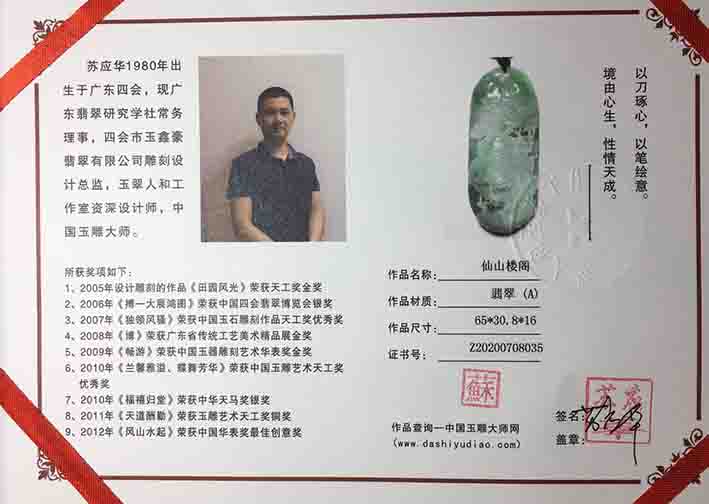 苏应华1980年出
生于广东四会，现广
东翡翠研究学社常务
理事，四会市玉鑫豪
翡翠有限公司雕刻设
计总监，玉翠人和工
作室资深设计师，中
国玉雕大师。
以刀琢心，以笔绘意。
境由心生，性情天成。
所获奖项如下：
1、2005年设计雕刻的作品《田园风光》荣获天工奖金奖
2、2006年《搏一大展鸿图》荣获中国四会翡翠博览会银奖
3、2007年《独领风骚》荣获中国玉石雕刻作品天工奖优秀奖
4、2008年《博》荣获广东省传统工艺美术精品展金奖
5、2009年《畅游》荣获中国玉器雕刻艺术华表奖金奖
6、2010年《兰馨雅溢、蝶舞芳华》荣获中国玉雕艺术天工奖
优秀奖
7、2010年《福禧归堂》荣获中华天马奖银奖
8、2011年《天道酬勤》荣获玉雕艺术天工奖铜奖
9、2012年《风山水起》荣获中国华表奖最佳创意奖
作品名称： 仙山楼阁
作品材质： 翡翠 (A)
作品尺寸： 65*30.8*16
证书号： Z20200708035
蘇
作品查询一中国玉雕大师网
(www.dashiyudiao.com)
签名：
盖章：